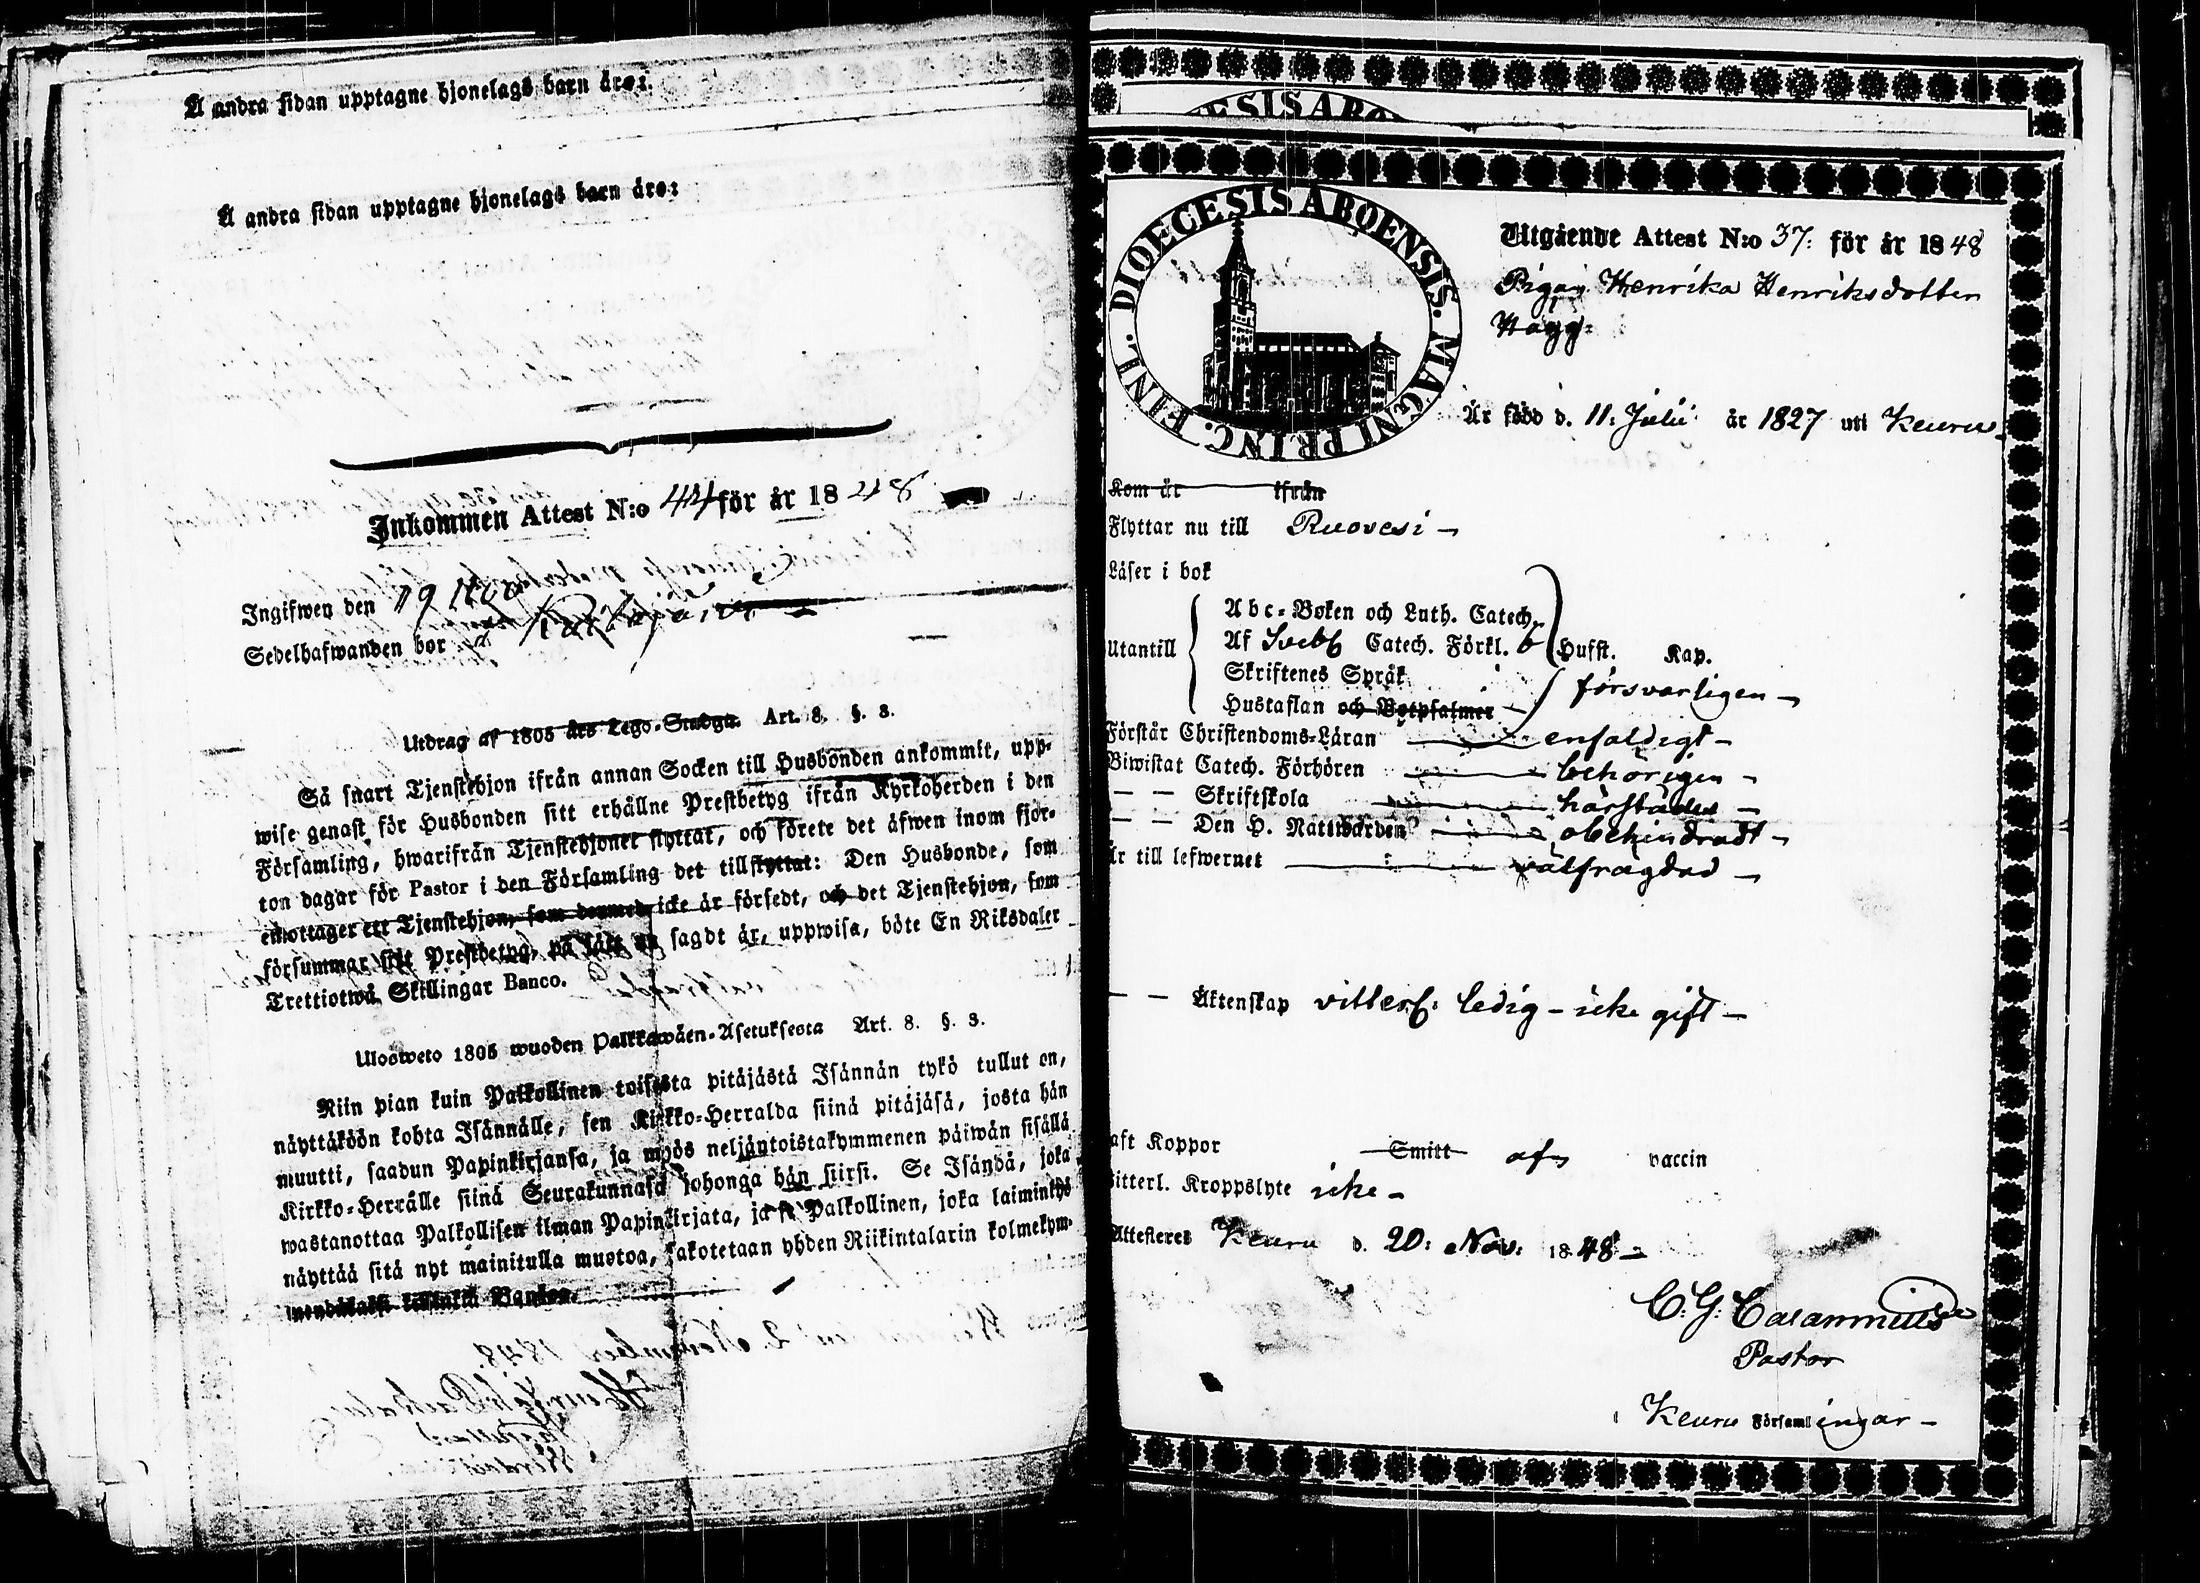 Å andra sidan upptagne hjonelags barn äro:
Å andra sidan upptagne hjonelags barn äro:
Inkommen Attest N:o 44 för år 1848
Ingifwen den 19 Nov
Sedelhafwanden bor
Utdrag af 1805 års Lego-Stadga. Art. 8. §. 3.
Så snart Tjenstehjon ifrån annan Socken till Husbonden ankommit, upp-
wise genast för Husbonden sitt erhållne Prestbetyg ifrån Kyrkoherden i den
Församling, hwarifrån Tjenstehjonet flyttat, och förete det äfwen inom fjor-
ton dagar för Pastor i den Församling det tillflyttat: Den Husbonde, som
emottager ett Tjenstehjon, som dermed icke är försedt, och det Tjenstehjon, som
försummar sitt Prestbetyg, på sätt nu sagdt är, uppwisa, böte En Riksdaler
Trettiotwå Skillingar Banco.
Ulosweto 1805 wuoden Palkkawäen-Asetuksesta Art. 8. §. 3.
Niin pian kuin Palkollinen toisesta pitäjästä Isännän tykö tullut on,
näyttäköön kohta Isännälle, sen Kirkko-Herralda siinä pitäjäsä, josta hän
muutti, saadun Papinkirjansa, ja myös neljäntoistakymmenen päiwän sisällä
Kirkko-Herrälle siinä Seurakunnasa johonga hän siirsi. Se Isändä, joka
wastanottaa Palkollisen ilman Papinkirjata, ja se Palkollinen, joka laiminlyö
näyttää sitä nyt mainitulla muotoa, sakotetaan yhden Riikintalarin kolmekym-
mendäkaksi killinkiä Bankoa.
DIOECESIS ABO
DIOECESIS ABOENSIS. MAGNI PRINC. FINL.
Utgående Attest N:o 37: för år 1848
Pigan Henrika Henriksdotter
Hägg:
Är född d. 11: Julii år 1827 uti Keuru
Kom år ifrån
Flyttar nu till Ruovesi
Läser i bok
Abc-Boken och Luth. Catech.
Utantill Af Sveb Catech. Förkl. Hufst. Kap.
Skriftenes Språk
Hustaflan och Botpsalmer försvarligen
Förstår Christendoms-Läran enfaldigt
Biwistat Catech. Förhören behörigen
— — Skriftskola härstädes
— — Den H. Nattwarden obehindradt
Är till lefwernet välfrägdad
— — Äktenskap vitterl: ledig - icke gift
aft Koppor Smitt af vaccin
Witterl. Kroppslyte icke
Attesteres Keuru d. 20: Nov: 1848
C. G. Calamnius
Pastor
i Keuru Församlingar